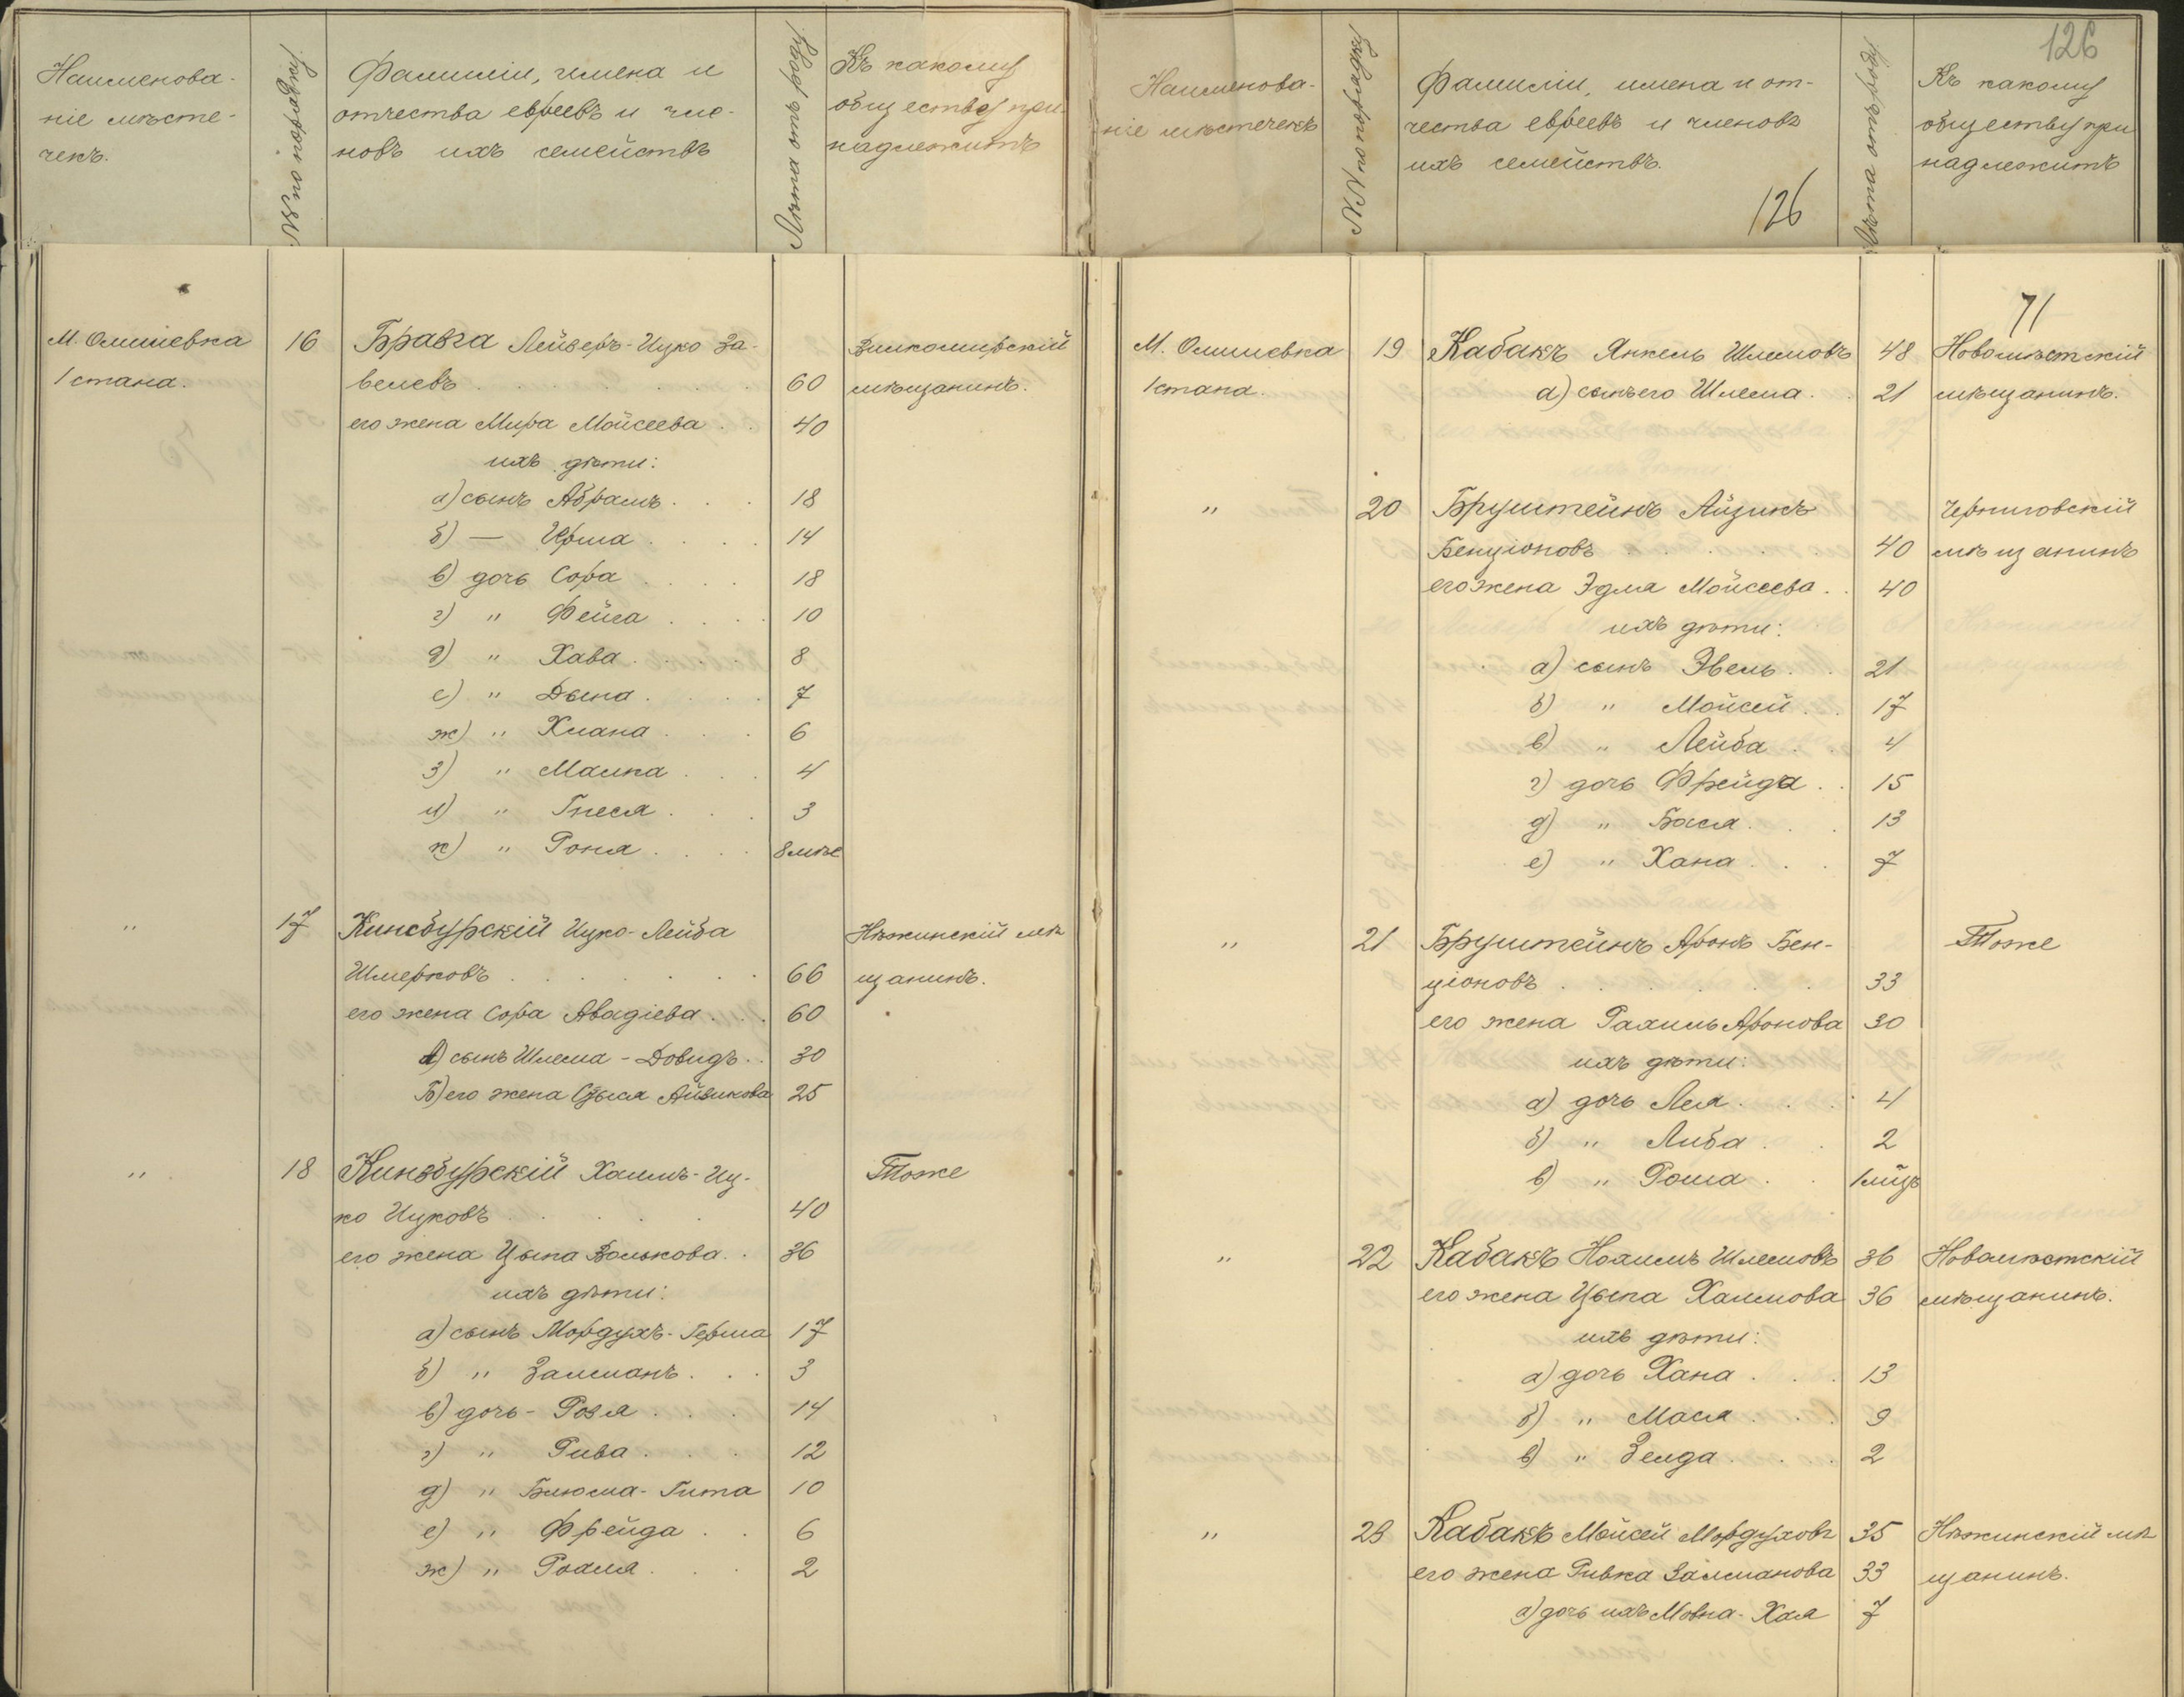 Наименова-
ніе мѣсте-
чекъ.
№№ по порядку
Фамиліи, имена и
отчества евреевъ и чле-
новъ ихъ семействъ
Лѣта отъ роду
Къ какому
обществу при
надлежитъ
М. Олишевка
1 стана.
16
Бравга Лейзеръ-Ицко За-
велевъ . . . . . . 60
Вилкомирскій
мѣщанинъ.
его жена Мира Мойсеева . . 40
ихъ дѣти:
а) сынъ Абрамъ . . . 18
б) — Ирма . . . . 14
в) дочь Сора . . . . 18
г) " Фейга . . . . 10
д) " Хава . . . . 8
е) " Двейна . . . . 7
ж) " Хиана . . . . 6
з) " Малка . . . 4
и) " Гнеся . . . 3
к) " Роня . . . . 8 мѣс
" 17
Кинсбурскій Ицко-Лейба
Шмерковъ . . . . . . 66
Нѣжинскій мѣ
щанинъ.
его жена Сора Авадіева . . . 60
А) сынъ Шлема-Довидъ . . 30
Б) его жена Айзикова 25
" 18
Кинзбурскій Хаимъ-Иц-
ко Ицковъ . . . . . 40
Тоже
его жена Цыпа Волькова . . 36
ихъ дѣти:
а) сынъ Мордухъ-Герша 17
б) " Залманъ . . . 3
в) дочь - Розя . . . 14
г) " Рива . . . . 12
д) " Блюма-Гита 10
е) " Фрейда . . 6
ж) " Рохля . . . 2
126
Наименова-
ніе мѣстечекъ
№№ по порядку
Фамиліи, имена и от-
чества евреевъ и членовъ
ихъ семействъ.
126
Лѣта отъ роду
Къ какому
обществу при
надлежитъ
71
М. Олишевка
1 стана.
19
Кабакъ Янкель Шлемовъ 48
а) сынъ его Шлема . . 21
Новомѣстскій
мѣщанинъ.
" 20
Бруштейнъ Айзикъ
Бенціоновъ . . . . 40
Черниговскій
мѣщанинъ
его жена Эдля Мойсеева . . 40
ихъ дѣти:
а) сынъ Эвель . . 21
б) " Мойсей . . 17
в) " Лейба . . . 4
г) дочь Фрейда . . 15
д) " Бася . . . 13
е) " Хана . . . 7
" 21
Бруштейнъ Аронъ Бен-
ціоновъ . . . . . . 33
Тоже
его жена Рахиль Аронова 30
ихъ дѣти:
а) дочь Лея . . . . 4
б) " Либа . . . 2
в) " Роша . . 1 мѣц
" 22
Кабакъ Нохимъ Шлемовъ 36
его жена Цыпа Хаимова 36
Новомѣстскій
мѣщанинъ.
ихъ дѣти:
а) дочь Хана . . . 13
б) " Мася . . . 9
в) " Зелда . . . 2
" 23
Кабакъ Мойсей Мордуховъ 35
его жена Ривка Залманова 33
Нѣжинскій мѣ
щанинъ.
а) дочь ихъ Мовна-Хая 7